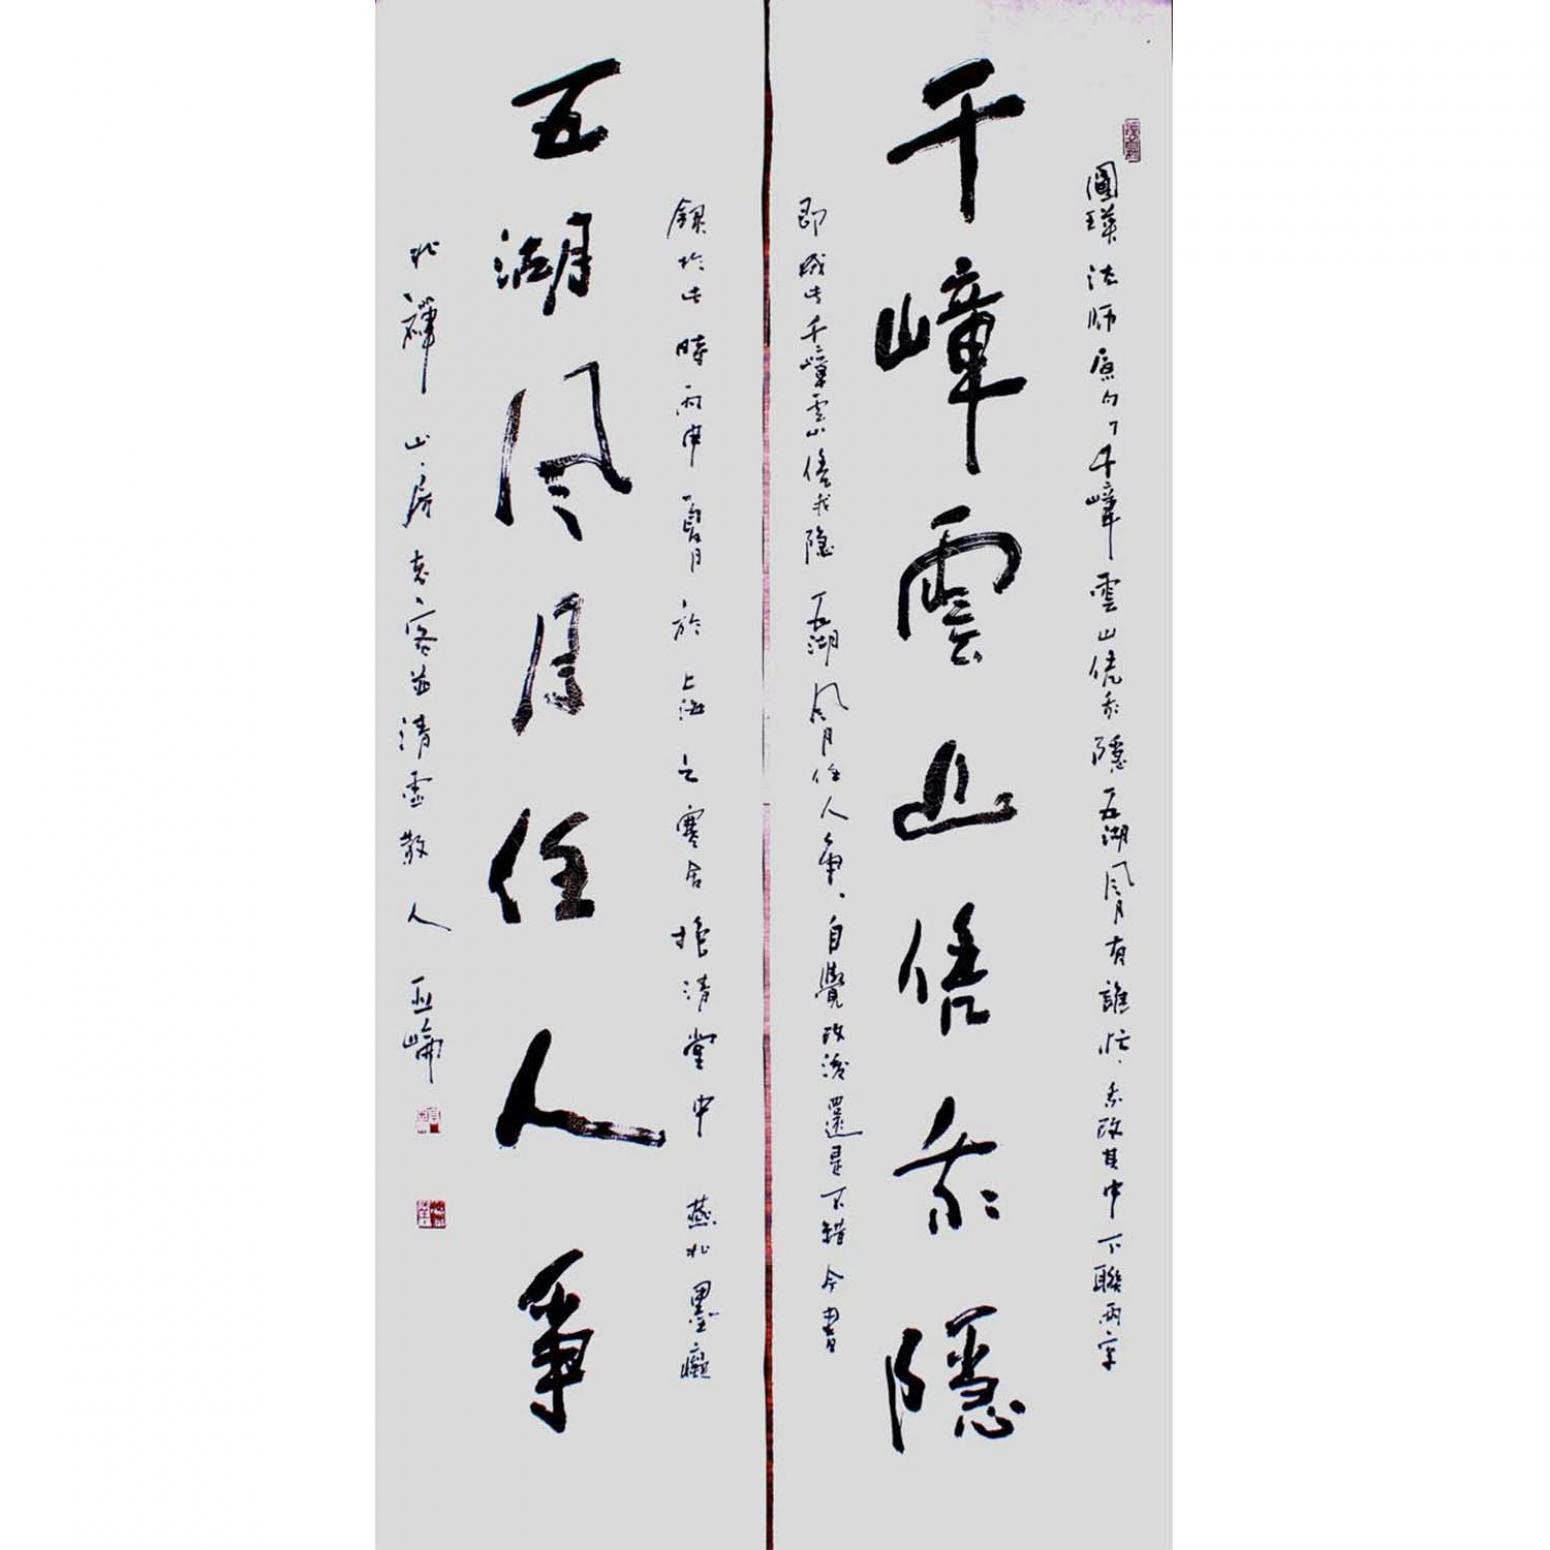 圓瑛法师原句「千嶂雲山借我隱五湖風月有誰忙、我改其中下聯兩字
千嶂雲山借我隱
即成此千嶂雲山借我隐五湖風月任人爭、自覺改後還是不錯今書
錄於此時丙申夏月於上海之寒居挹清堂中 燕北墨癡
五湖風月任人爭
北禪山房客並清虛散人 亞崘